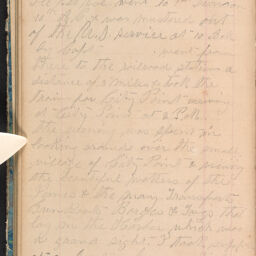 10th A.C. & was mustered out
of the U.S. service at 10 Oclk
by Capt. went from
there to the railroad station a
distance of 2 miles & took the
train for City Point arriving
at City Point at 2 P.M.
the evening was spent in
looking around over the small
village of City Point & viewing
the beautiful waters of the
James & the many Transports
Gun Boats Barges & Tugs that
lay in the Harbor which was
a grand sight. I took supper